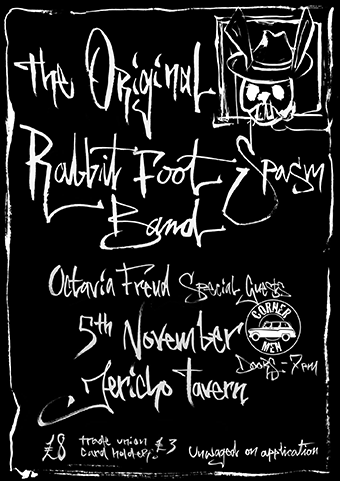 The Original
Rabbit Foot Spasm
Band
Octavia Freud Special Guests
CORNER
MEN
5th November
Doors - 7pm
Jericho Tavern
£8 trade union £3 Unwaged on application
card holders